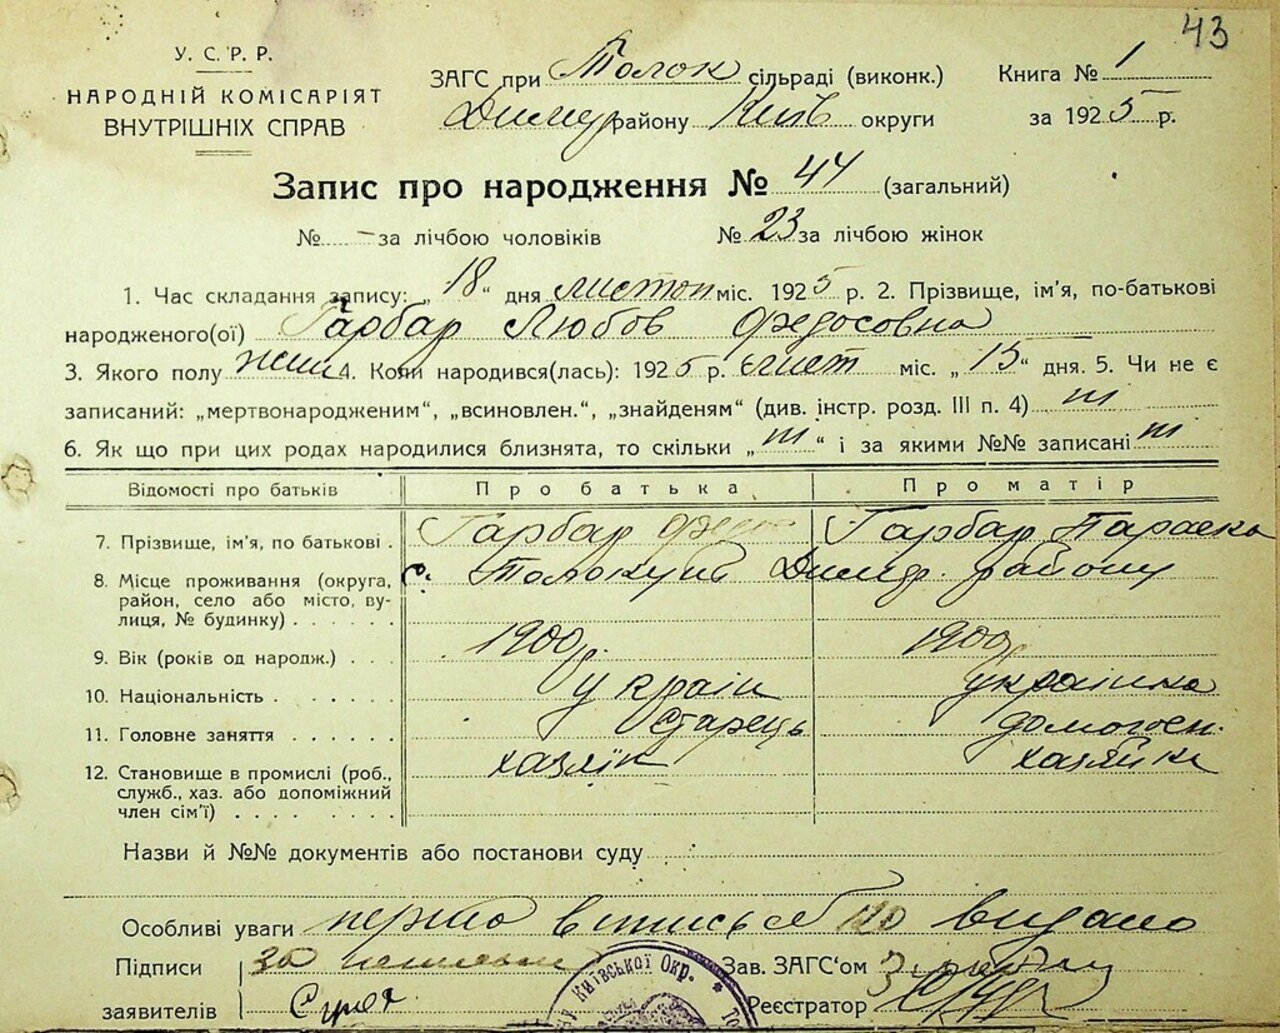 43
У. С. Р. Р.
НАРОДНІЙ КОМІСАРІЯТ
ВНУТРІШНІХ СПРАВ
ЗАГС при Толок сільраді (виконк.) Книга № 1
Димер району Київ округи за 1925 р.
Запис про народження № 44 (загальний)
№ – за лічбою чоловіків № 23 за лічбою жінок
1. Час складання запису: „18“ дня листоп міс. 1925 р. 2. Прізвище, ім'я, по-батькові
народженого(ої) Гарбар Любов Федосовна
3. Якого полу жін 4. Коли народився(лась): 1925 р. лист міс. „15“ дня. 5. Чи не є
записаний: „мертвонародженим“, „всиновлен.“, „знайденям“ (див. інстр. розд. III п. 4)
6. Як що при цих родах народилися близнята, то скільки „ “ і за якими №№ записані
Відомості про батьків Про батька Про матір
7. Прізвище, ім'я, по батькові . Гарбар Гарбар Параска
8. Місце проживання (округа, с. Толокунь Димер. району
район, село або місто, ву-
лиця, № будинку) . . . . . .
9. Вік (років од народж.) . . . 1900 р. 1900 р.
10. Національність . . . . . україн українка
11. Головне заняття . . . . . . старець домогосп.
12. Становище в промислі (роб., хазяїн хазяйка
служб., хаз. або допоміжний
член сім'ї) . . . . . . . .
Назви й №№ документів або постанови суду
Особливі уваги видано
Підписи за Зав. ЗАГС'ом
заявителів Реєстратор
Київської Окр.